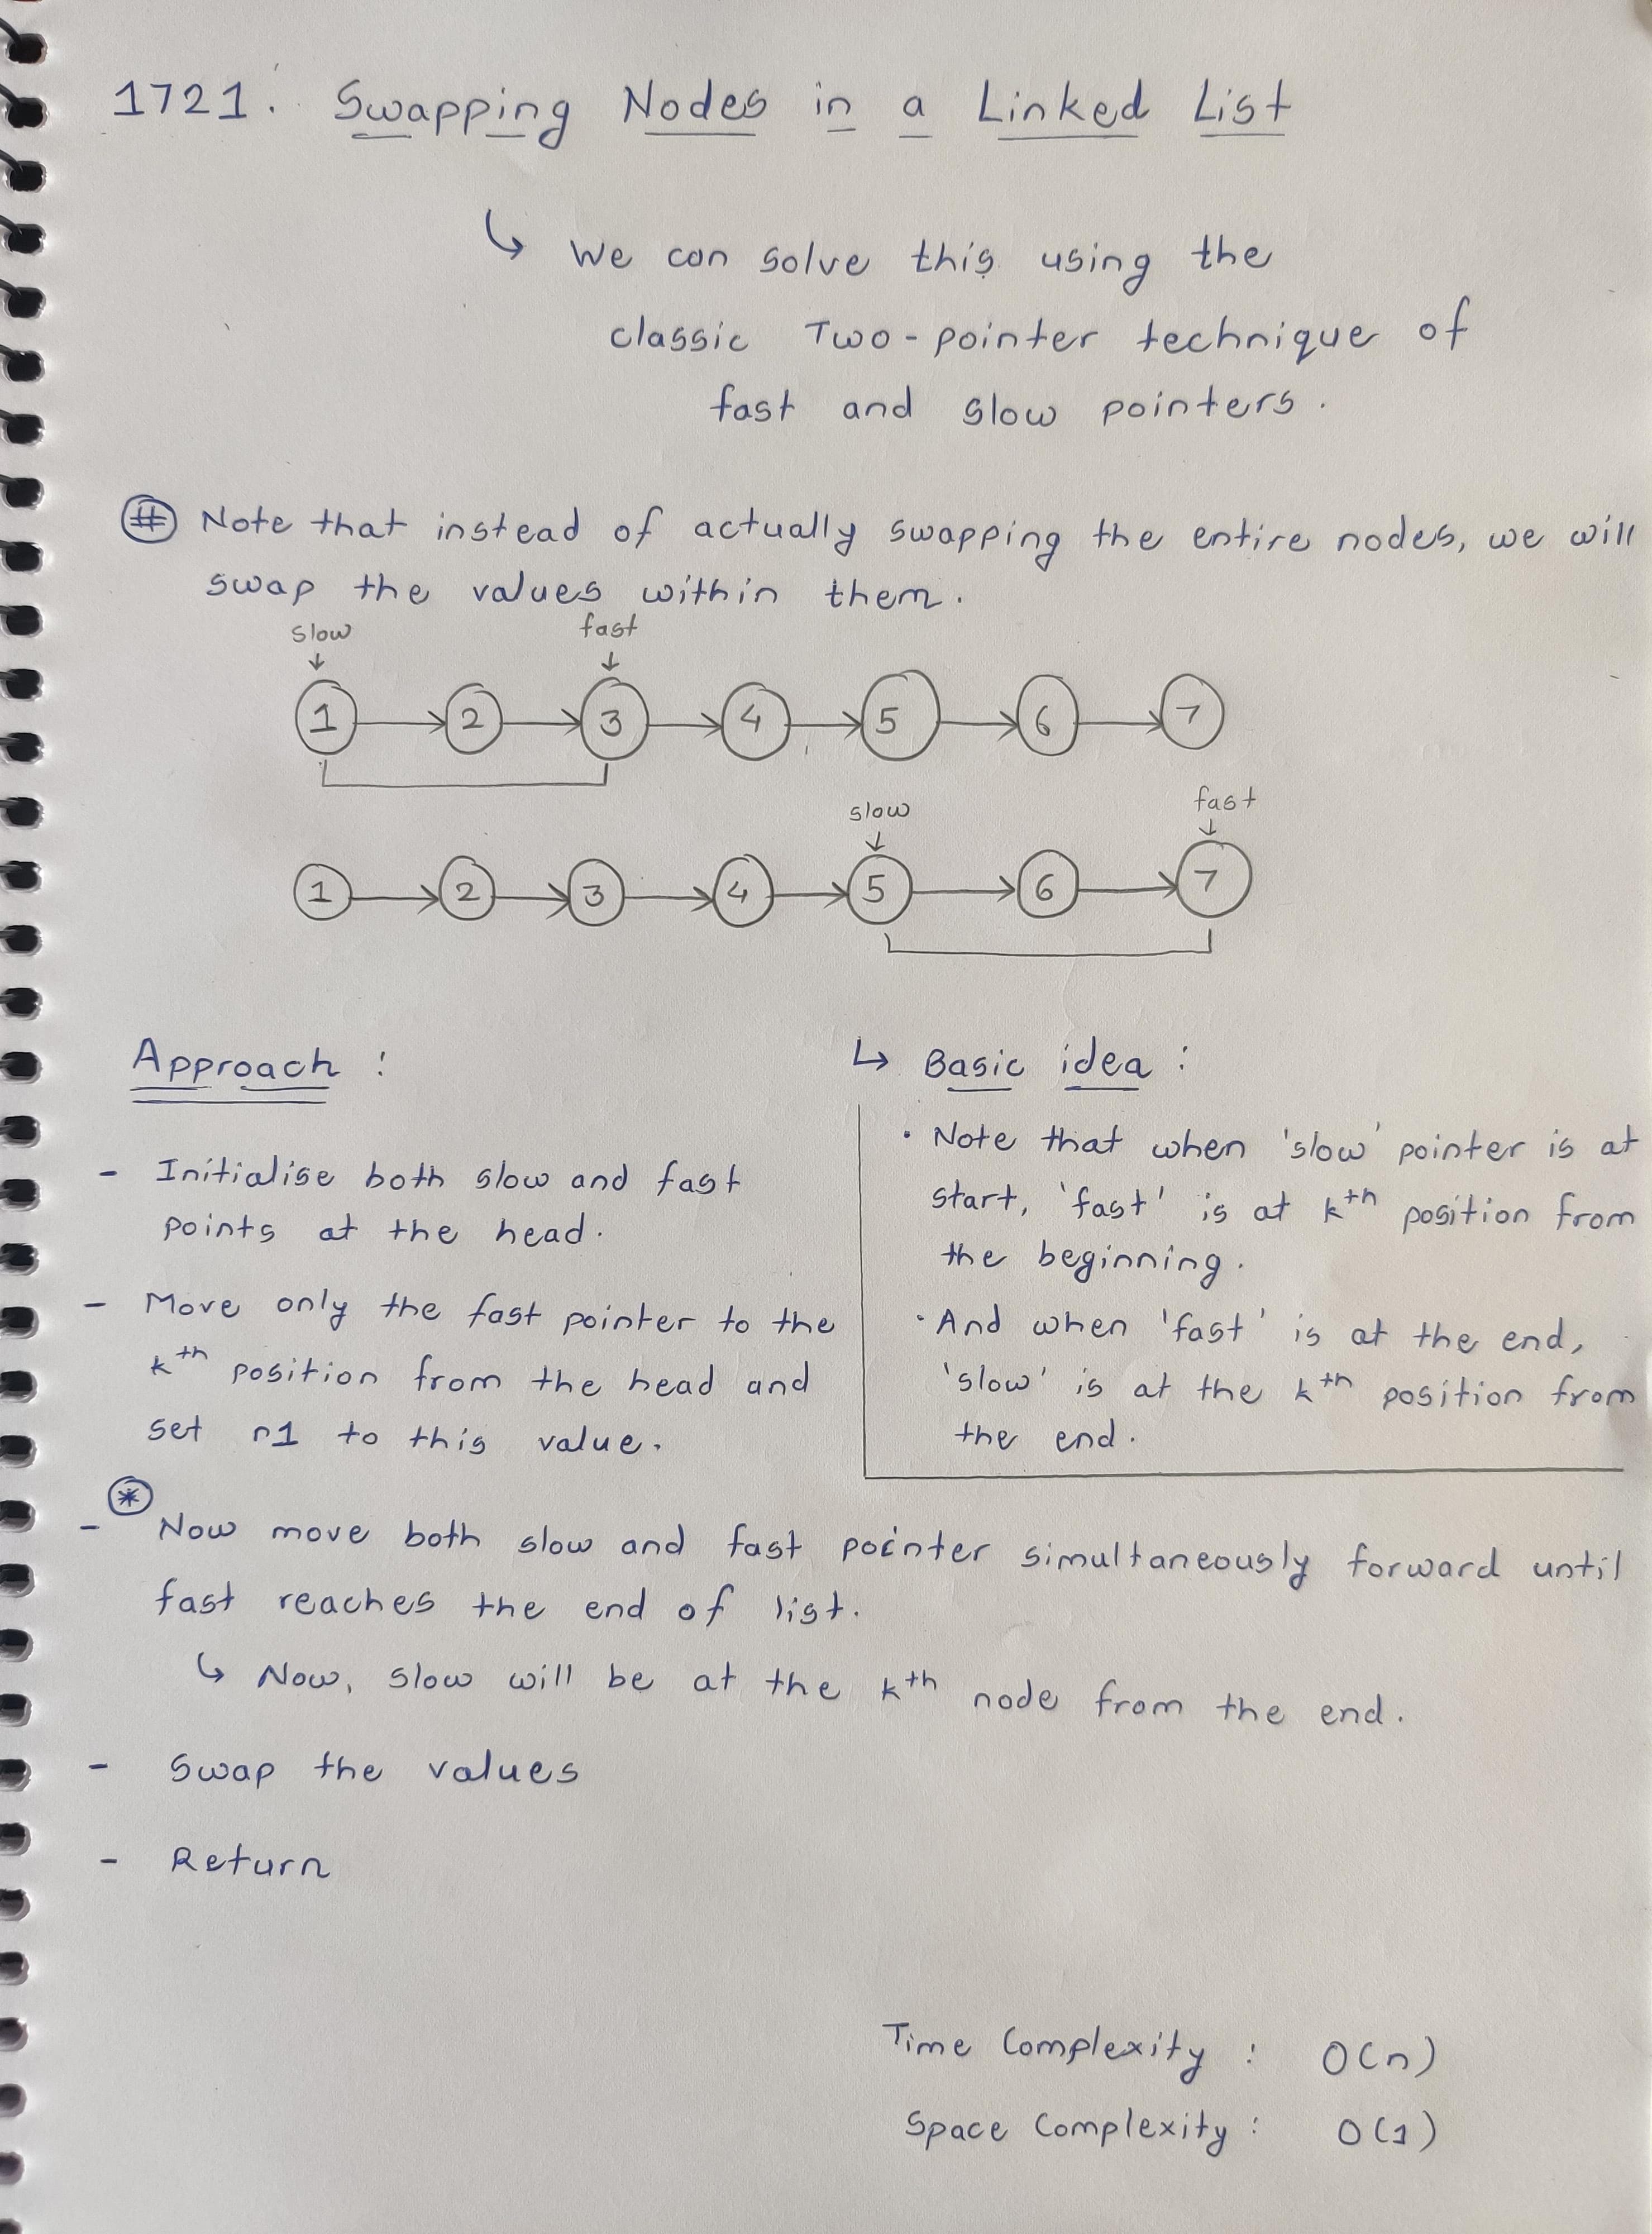 1721. Swapping Nodes in a Linked List
↳ We can solve this using the
classic Two-pointer technique of
fast and slow pointers.
# Note that instead of actually swapping the entire nodes, we will
swap the values within them.
slow fast
1 → 2 → 3 → 4 → 5 → 6 → 7
slow fast
1 → 2 → 3 → 4 → 5 → 6 → 7
Approach :
- Initialise both slow and fast
points at the head.
- Move only the fast pointer to the
kth position from the head and
set n1 to this value.
↳ Basic idea :
• Note that when 'slow' pointer is at
start, 'fast' is at kth position from
the beginning.
• And when 'fast' is at the end,
'slow' is at the kth position from
the end.
- * Now move both slow and fast pointer simultaneously forward until
fast reaches the end of list.
↳ Now, slow will be at the kth node from the end.
- Swap the values
- Return
Time Complexity : O(n)
Space Complexity : O(1)